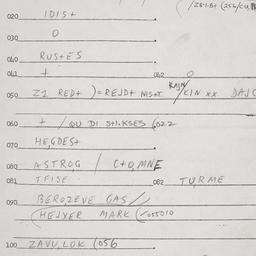 020 IDIS+
030 O
040 RUS+ES
041 + 042 O
050 Z1 RED+ )=REJD+ /KIN xx
060 + / QU DI 6022
070 HE,GDES+
080 ASTROG / C+O,MNE
081 TFISE 082 TURME
090 BEROZEVE GAS //
(HEJXER MARK (/055010
100 ZAVU,LOK (056